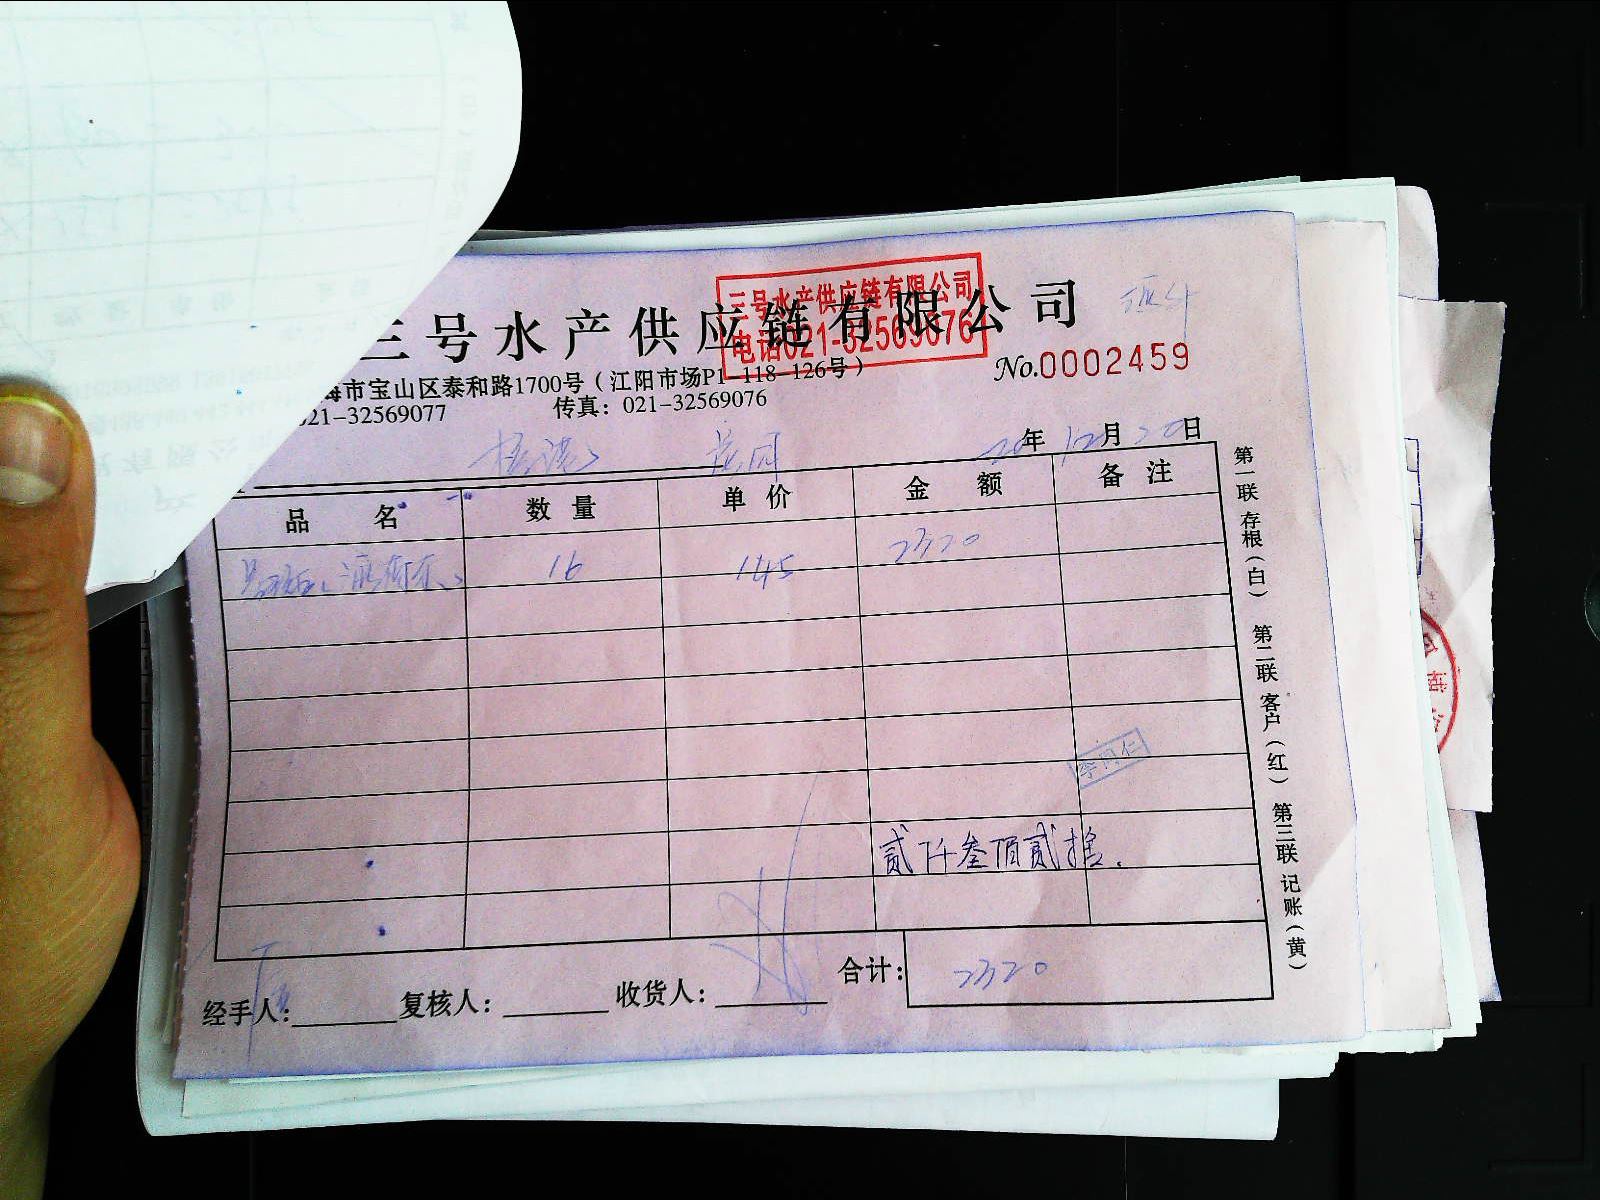 三号水产供应链有限公司
电话021-32569076
三号水产供应链有限公司
No.0002459
海市宝山区泰和路1700号（江阳市场P1-118-126号）
021-32569077 传真：021-32569076
20年12月20日
品名 数量 单价 金额 备注
16 145 2320
贰仟叁佰贰拾.
合计： 2320
经手人： 复核人： 收货人：
第一联 存根（白） 第二联 客户（红） 第三联 记账（黄）